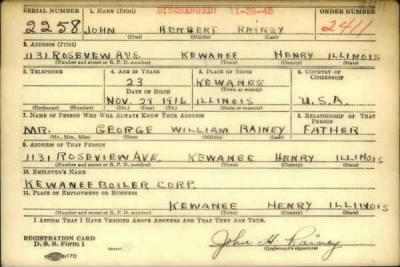 SERIAL NUMBER 1. NAME (Print) DISCHARGED: 11-28-45 ORDER NUMBER
2258 JOHN HERBERT RAINEY 2411
(First) (Middle) (Last)
2. ADDRESS (Print)
1131 ROSEVEW AVE. KEWANEE HENRY ILLINOIS
(Number and street or R. F. D. number) (Town) (County) (State)
3. TELEPHONE 4. AGE IN YEARS 5. PLACE OF BIRTH 6. COUNTRY OF CITIZENSHIP
23 KEWANEE
DATE OF BIRTH (Town or county)
NOV. 29 1916 ILLINOIS U.S.A.
(Exchange) (Number) (Mo.) (Day) (Yr.) (State or country)
7. NAME OF PERSON WHO WILL ALWAYS KNOW YOUR ADDRESS 8. RELATIONSHIP OF THAT PERSON
MR. GEORGE WILLIAM RAINEY FATHER
(Mr., Mrs., Miss) (First) (Middle) (Last)
9. ADDRESS OF THAT PERSON
1131 ROSEVIEW AVE. KEWANEE HENRY ILLINOIS
(Number and street or R. F. D. number) (Town) (County) (State)
10. EMPLOYER'S NAME
KEWANEE BOILER CORP.
11. PLACE OF EMPLOYMENT OR BUSINESS
KEWANEE HENRY ILLINOIS
(Number and street or R. F. D. number) (Town) (County) (State)
I AFFIRM THAT I HAVE VERIFIED ABOVE ANSWERS AND THAT THEY ARE TRUE.
REGISTRATION CARD
D. S. S. Form 1 John H. Rainey
(Registrant's signature)